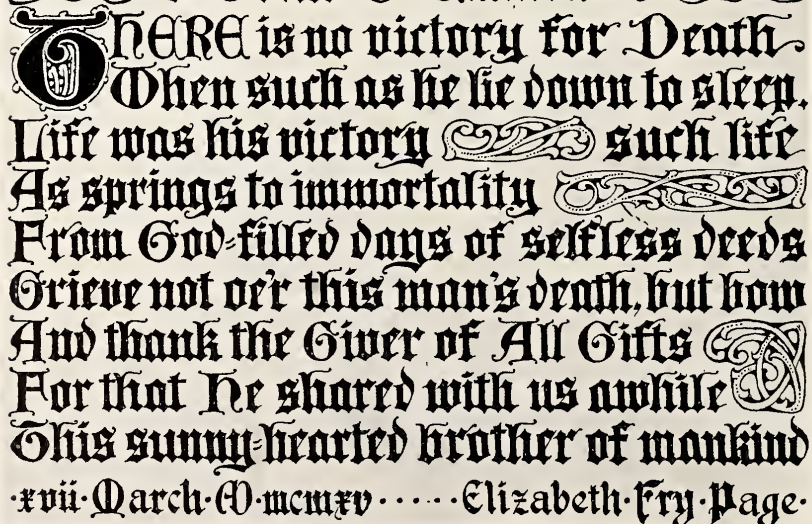 THERE is no victory for Death
When such as he lie down to sleep.
Life was his victory such life
As springs to immortality
From God-filled days of selfless deeds
Grieve not oe'r this man's death, but bow
And thank the Giver of All Gifts
For that He shared with us awhile
This sunny-hearted brother of mankind
·xvii·March·A·D·mcmxv······Elizabeth·Fry·Page·